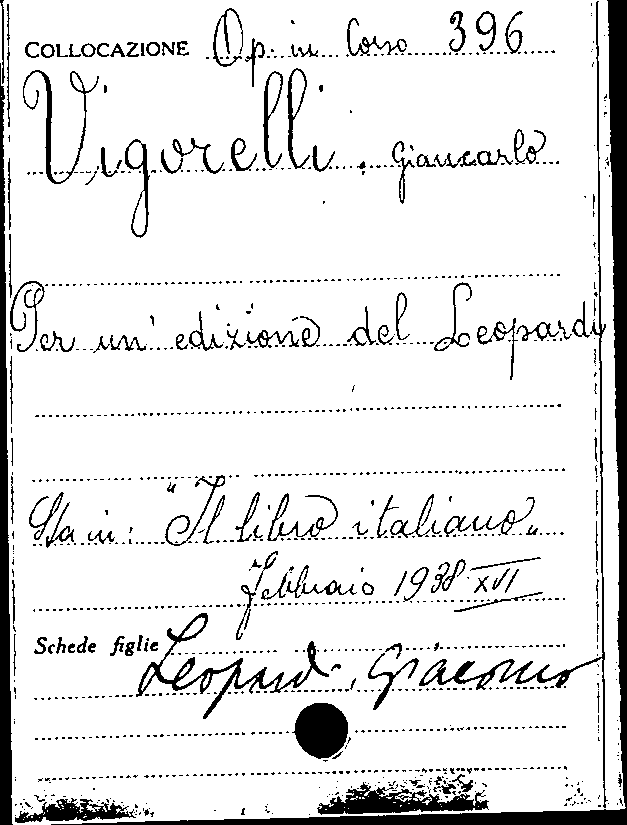 COLLOCAZIONE Op. in Corso 396
Vigorelli, Giancarlo
Per un' edizione del Leopardi
Sta in: "Il libro italiano„
febbraio 1938 XVI
Schede figlie Leopardi, Giacomo